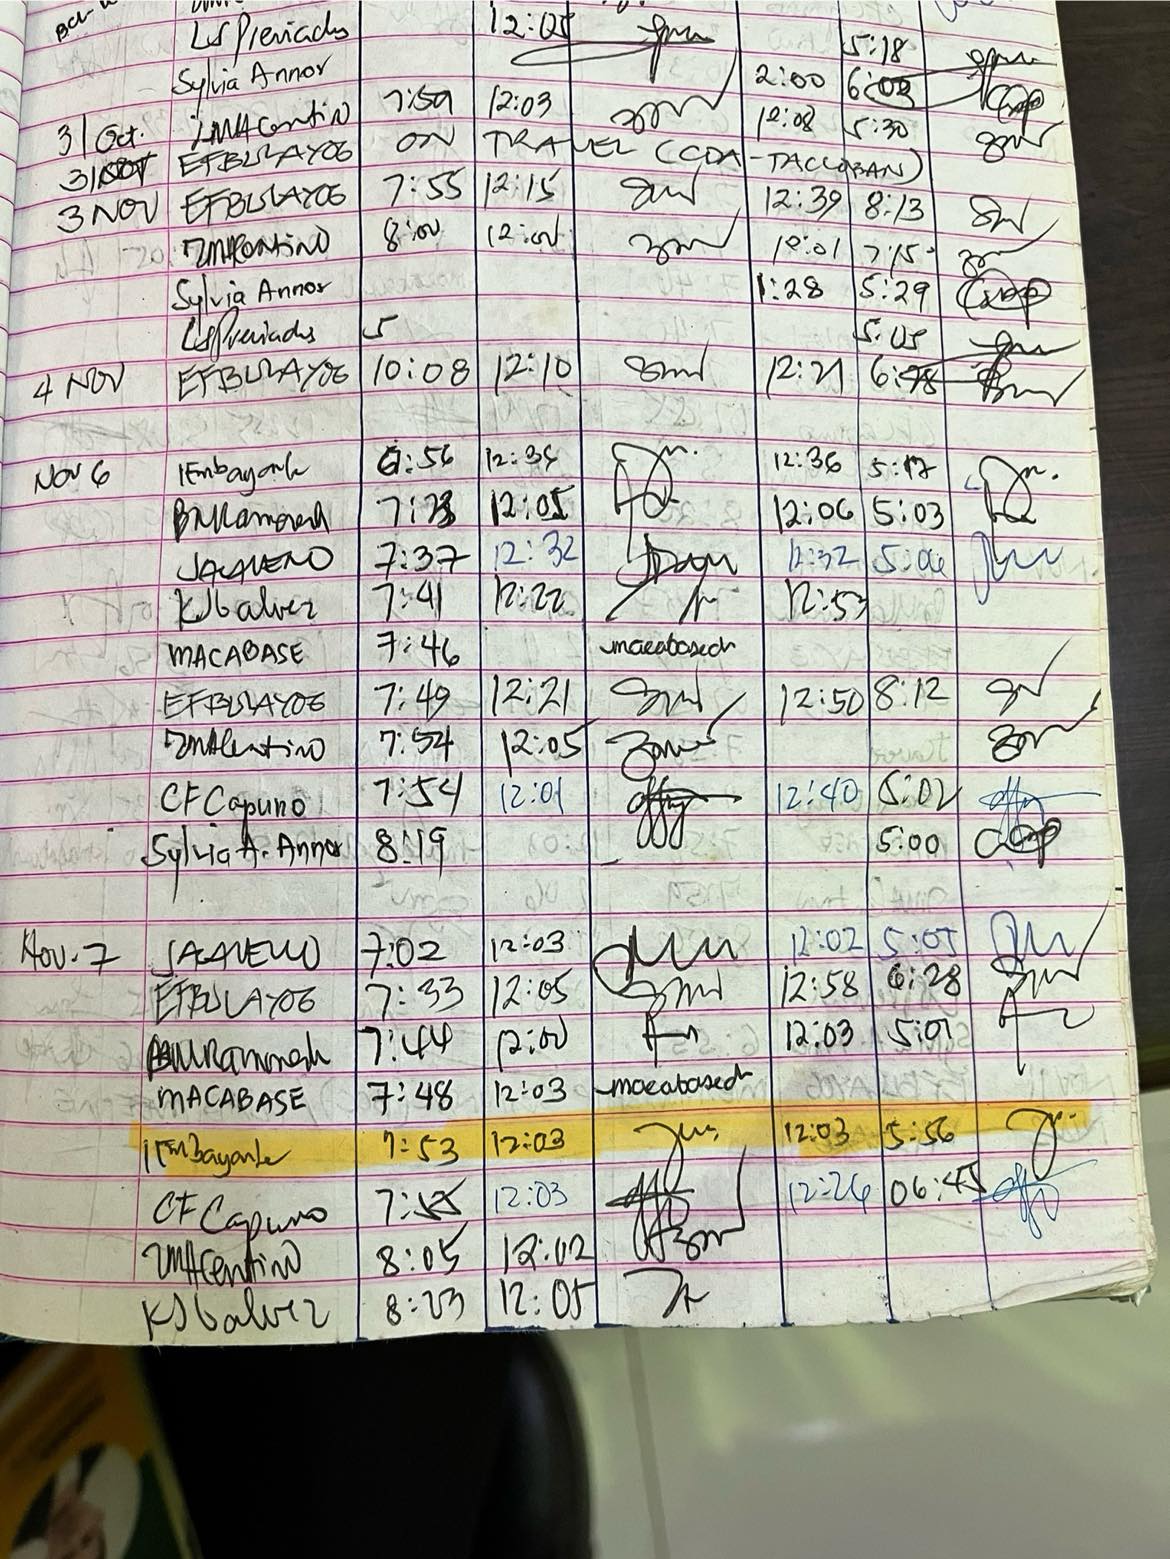 LSPreviados 12:05 5:18
Sylvia Annor 2:00 6:03
31 Oct. 7:59 12:03 12:08 5:30
31 OCT EFBULAYOG ON TRAVEL (CDA-TACLOBAN)
3 NOV EFBULAYOG 7:55 12:15 12:39 8:13
8:00 12:01 12:01 7:15
Sylvia Annor 1:28 5:29
LSPreviados 5 5:05
4 NOV EFBULAYOG 10:08 12:10 12:21
Nov 6 IEmbayarte 6:56 12:34 12:36 5:17
12:05 12:06 5:03
7:37 12:32 12:32 5:04
KJGalvez 7:41 12:22 12:53
MACABASE 7:46 macabasech
EFBULAYOG 7:49 12:21 12:50 8:12
7:54 12:05
CFCapuno 7:54 12:01 12:40 5:02
Sylvia A. Annor 8:19 5:00
Nov. 7 7:02 12:03 12:02 5:05
EFBULAYOG 7:33 12:05 12:58 6:28
7:44 12:00 12:03 5:01
MACABASE 7:48 12:03 macabasech
IEmbayarte 7:53 12:03 12:03 5:56
CF Capuno 12:03 12:26 06:45
8:05 12:02
KJGalvez 8:23 12:05